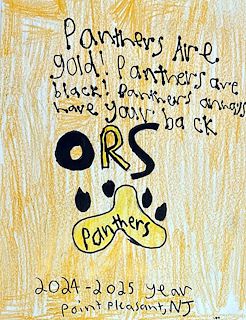 Panthers Are
gold! Panthers are
black! Panthers always
have your back
ORS
Panthers
2024-2025 year
Point Pleasant, NJ